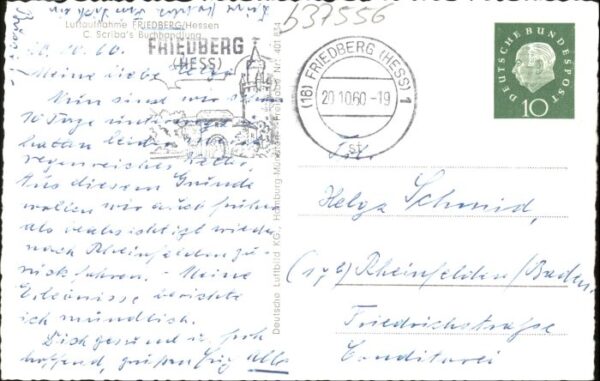 b37556
Luftaufnahme FRIEDBERG/Hessen
C. Scriba's Buchhandlung
20.10.60.
FRIEDBERG
(HESS)
Meine liebe Helga
Nun sind wir schon
10 Tage unterwegs
hatten leider
regenreiches
Aus diesem Grunde
wollen wir auch früher
als beabsichtigt wieder
nach Rheinfelden zu-
rück fahren. - Meine
Erlebnisse berichte
ich mündlich.
Dich gesund u. froh
hoffend, grüßen
Deutsche Luftbild KG., Hamburg
(16) FRIEDBERG (HESS) 1
20.10.60-19
st
DEUTSCHE BUNDESPOST
10
Frl.
Helga Schmid,
Rheinfelden/Baden.
Friedrichstraße
Conditorei